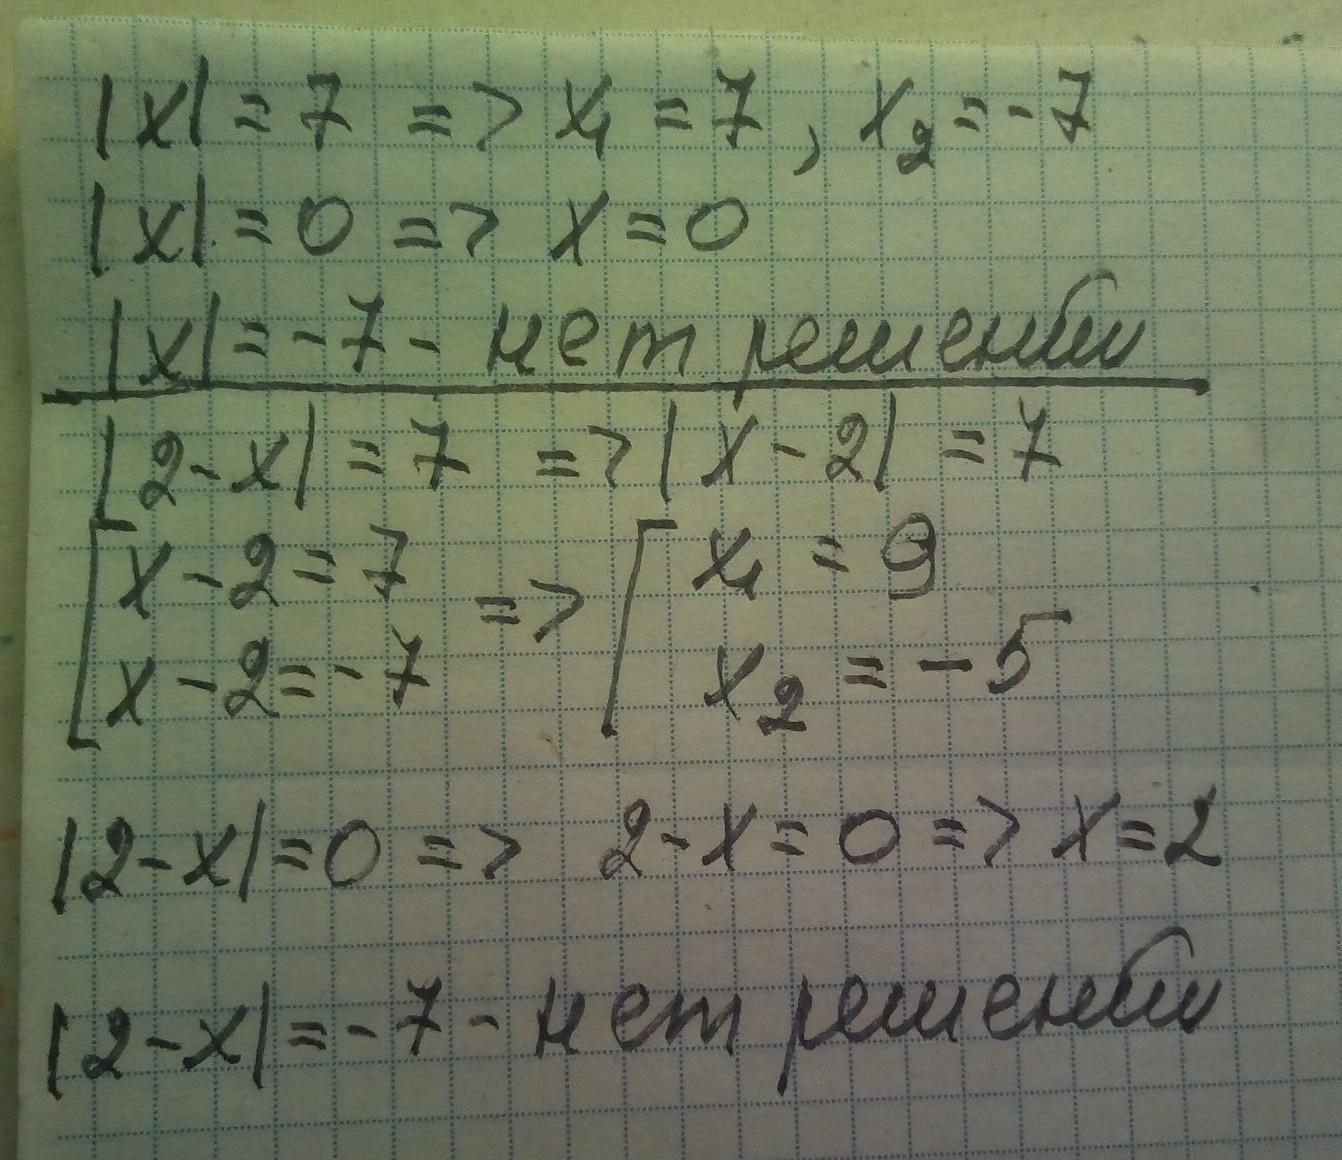 |x| = 7 => x₁ = 7, x₂ = -7
|x| = 0 => x = 0
|x| = -7 - нет решений
|2-x| = 7 => |x-2| = 7
[ x-2 = 7 => [ x₁ = 9
x-2 = -7 x₂ = -5
|2-x| = 0 => 2-x = 0 => x = 2
|2-x| = -7 - нет решений